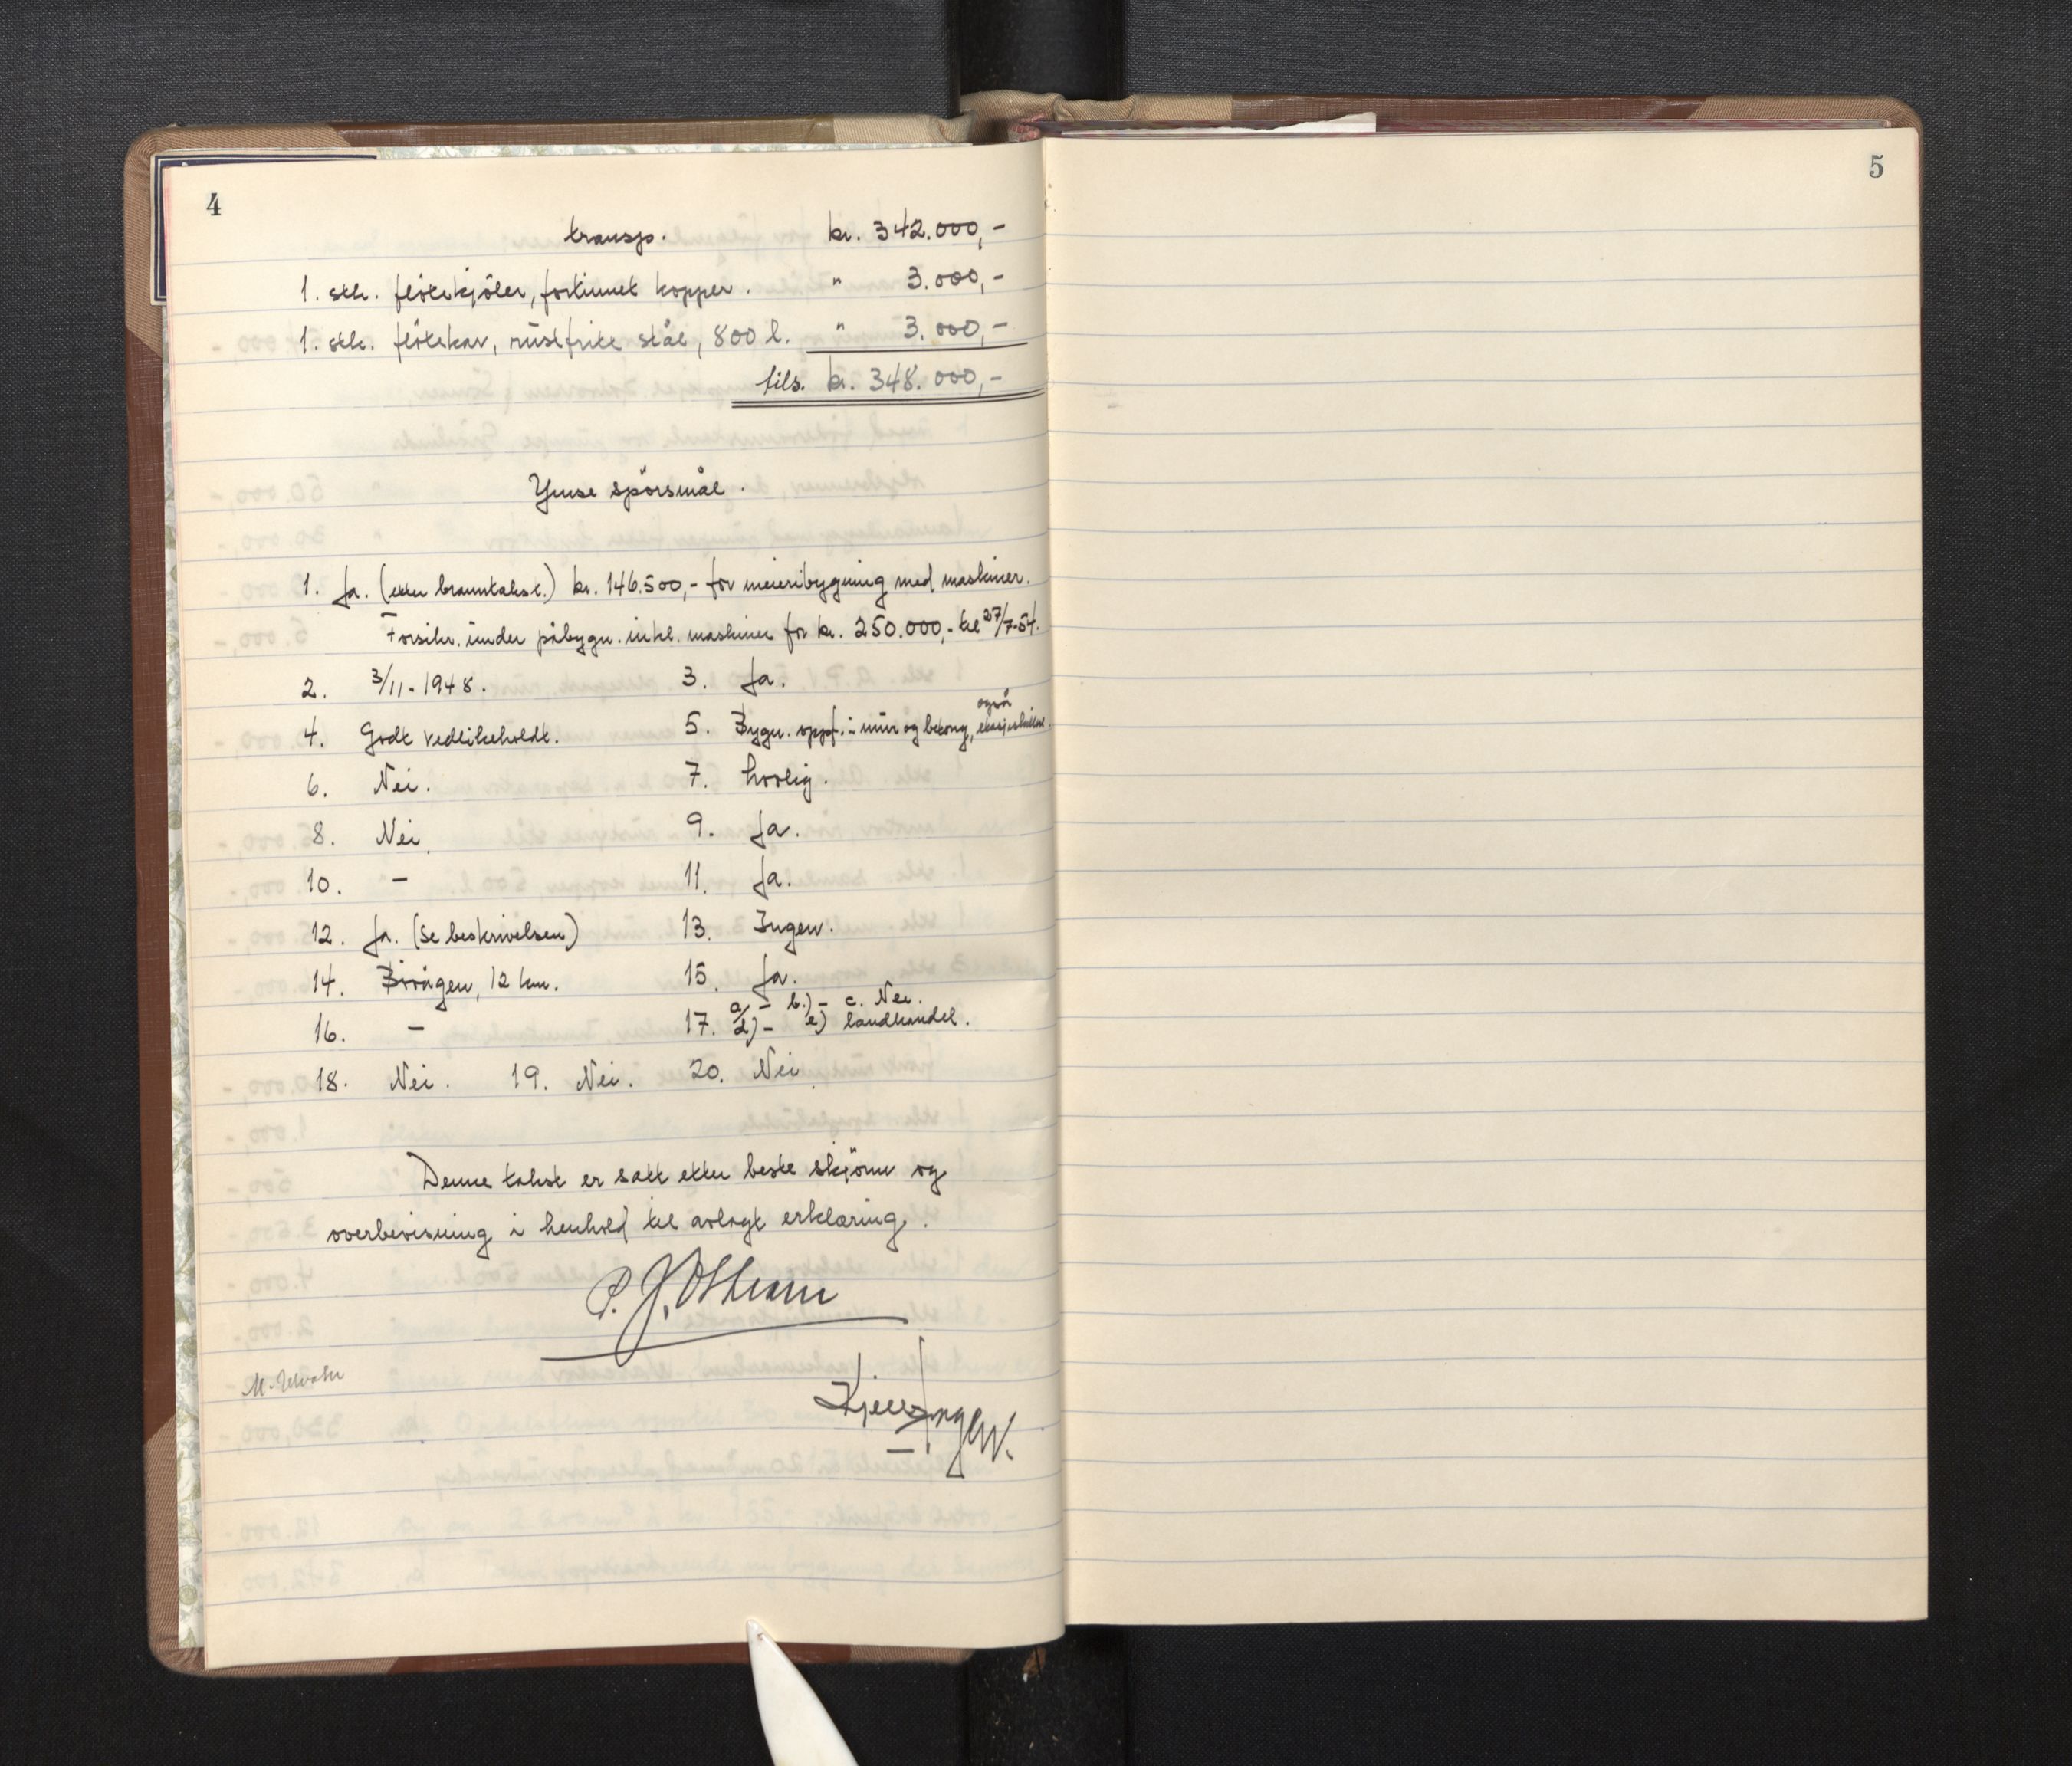 4
transp. kr. 342.000,-
1. stk. flötekjöler, fortinnet kopper. " 3.000,-
1. stk. flötekar, rüstfritt stål, 800 l. " 3.000,-
tils. kr. 348.000,-
Ymse spörsmål.
1. Ja. (etter branntakst.) kr. 146.500,- for meieribygning med maskiner.
Forsikr. ünder påbygn. inkl. maskiner for kr. 250.000,- til 27/7-54.
2. 3/11-1948. 3. Ja.
også
4. Godt vedlikeholdt. 5. Bygn. oppf. i mür og betong,
6. Nei. 7. Rolig.
8. Nei. 9. Ja.
10. - 11. Ja.
12. Ja. (Se beskrivelsen) 13. Ingen.
14. 12 km. 15. Ja.
16. - 17. a) - b.) - c. Nei.
d) - e) landhandel.
18. Nei. 19. Nei. 20. Nei.
Denne takst er satt etter beste skjönn og
overbevisning i henhold til avlagt erklæring.
P. J.
M.
5